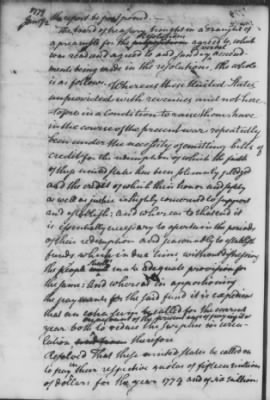 1779
Jan. 2
the report be postponed.
The board of treasury brought in a draught of
a preamble for the resolutions agreed by
was read and agreed to and sundry amend-
ments being made in the resolutions, the whole
is as follows. Whereas these United States
unprovided with revenues and not here-
tofore in a condition to raise them have
in the course of the present war repeatedly
been under the necessity of emitting bills of
credit for the redemption of which the faith
of these united states has been solemnly pledged
and the credit of which their honor and safety
as well as justice is highly concerned to support
and establish: And whereas to that end it
is essentially necessary to ascertain the periods
of their redemption and seasonably to establish
funds which in due time, without distressing
the people shall make adequate provision for
the same: And whereas in apportioning
the payments for the said fund it is expedient
that an extra sum be called for the current
year both to reduce the surplus in circu-
lation therefore
Resolved That these united states be called on
to pay in their respective quotas of fifteen millions
of dollars for the year 1779 and of six millions